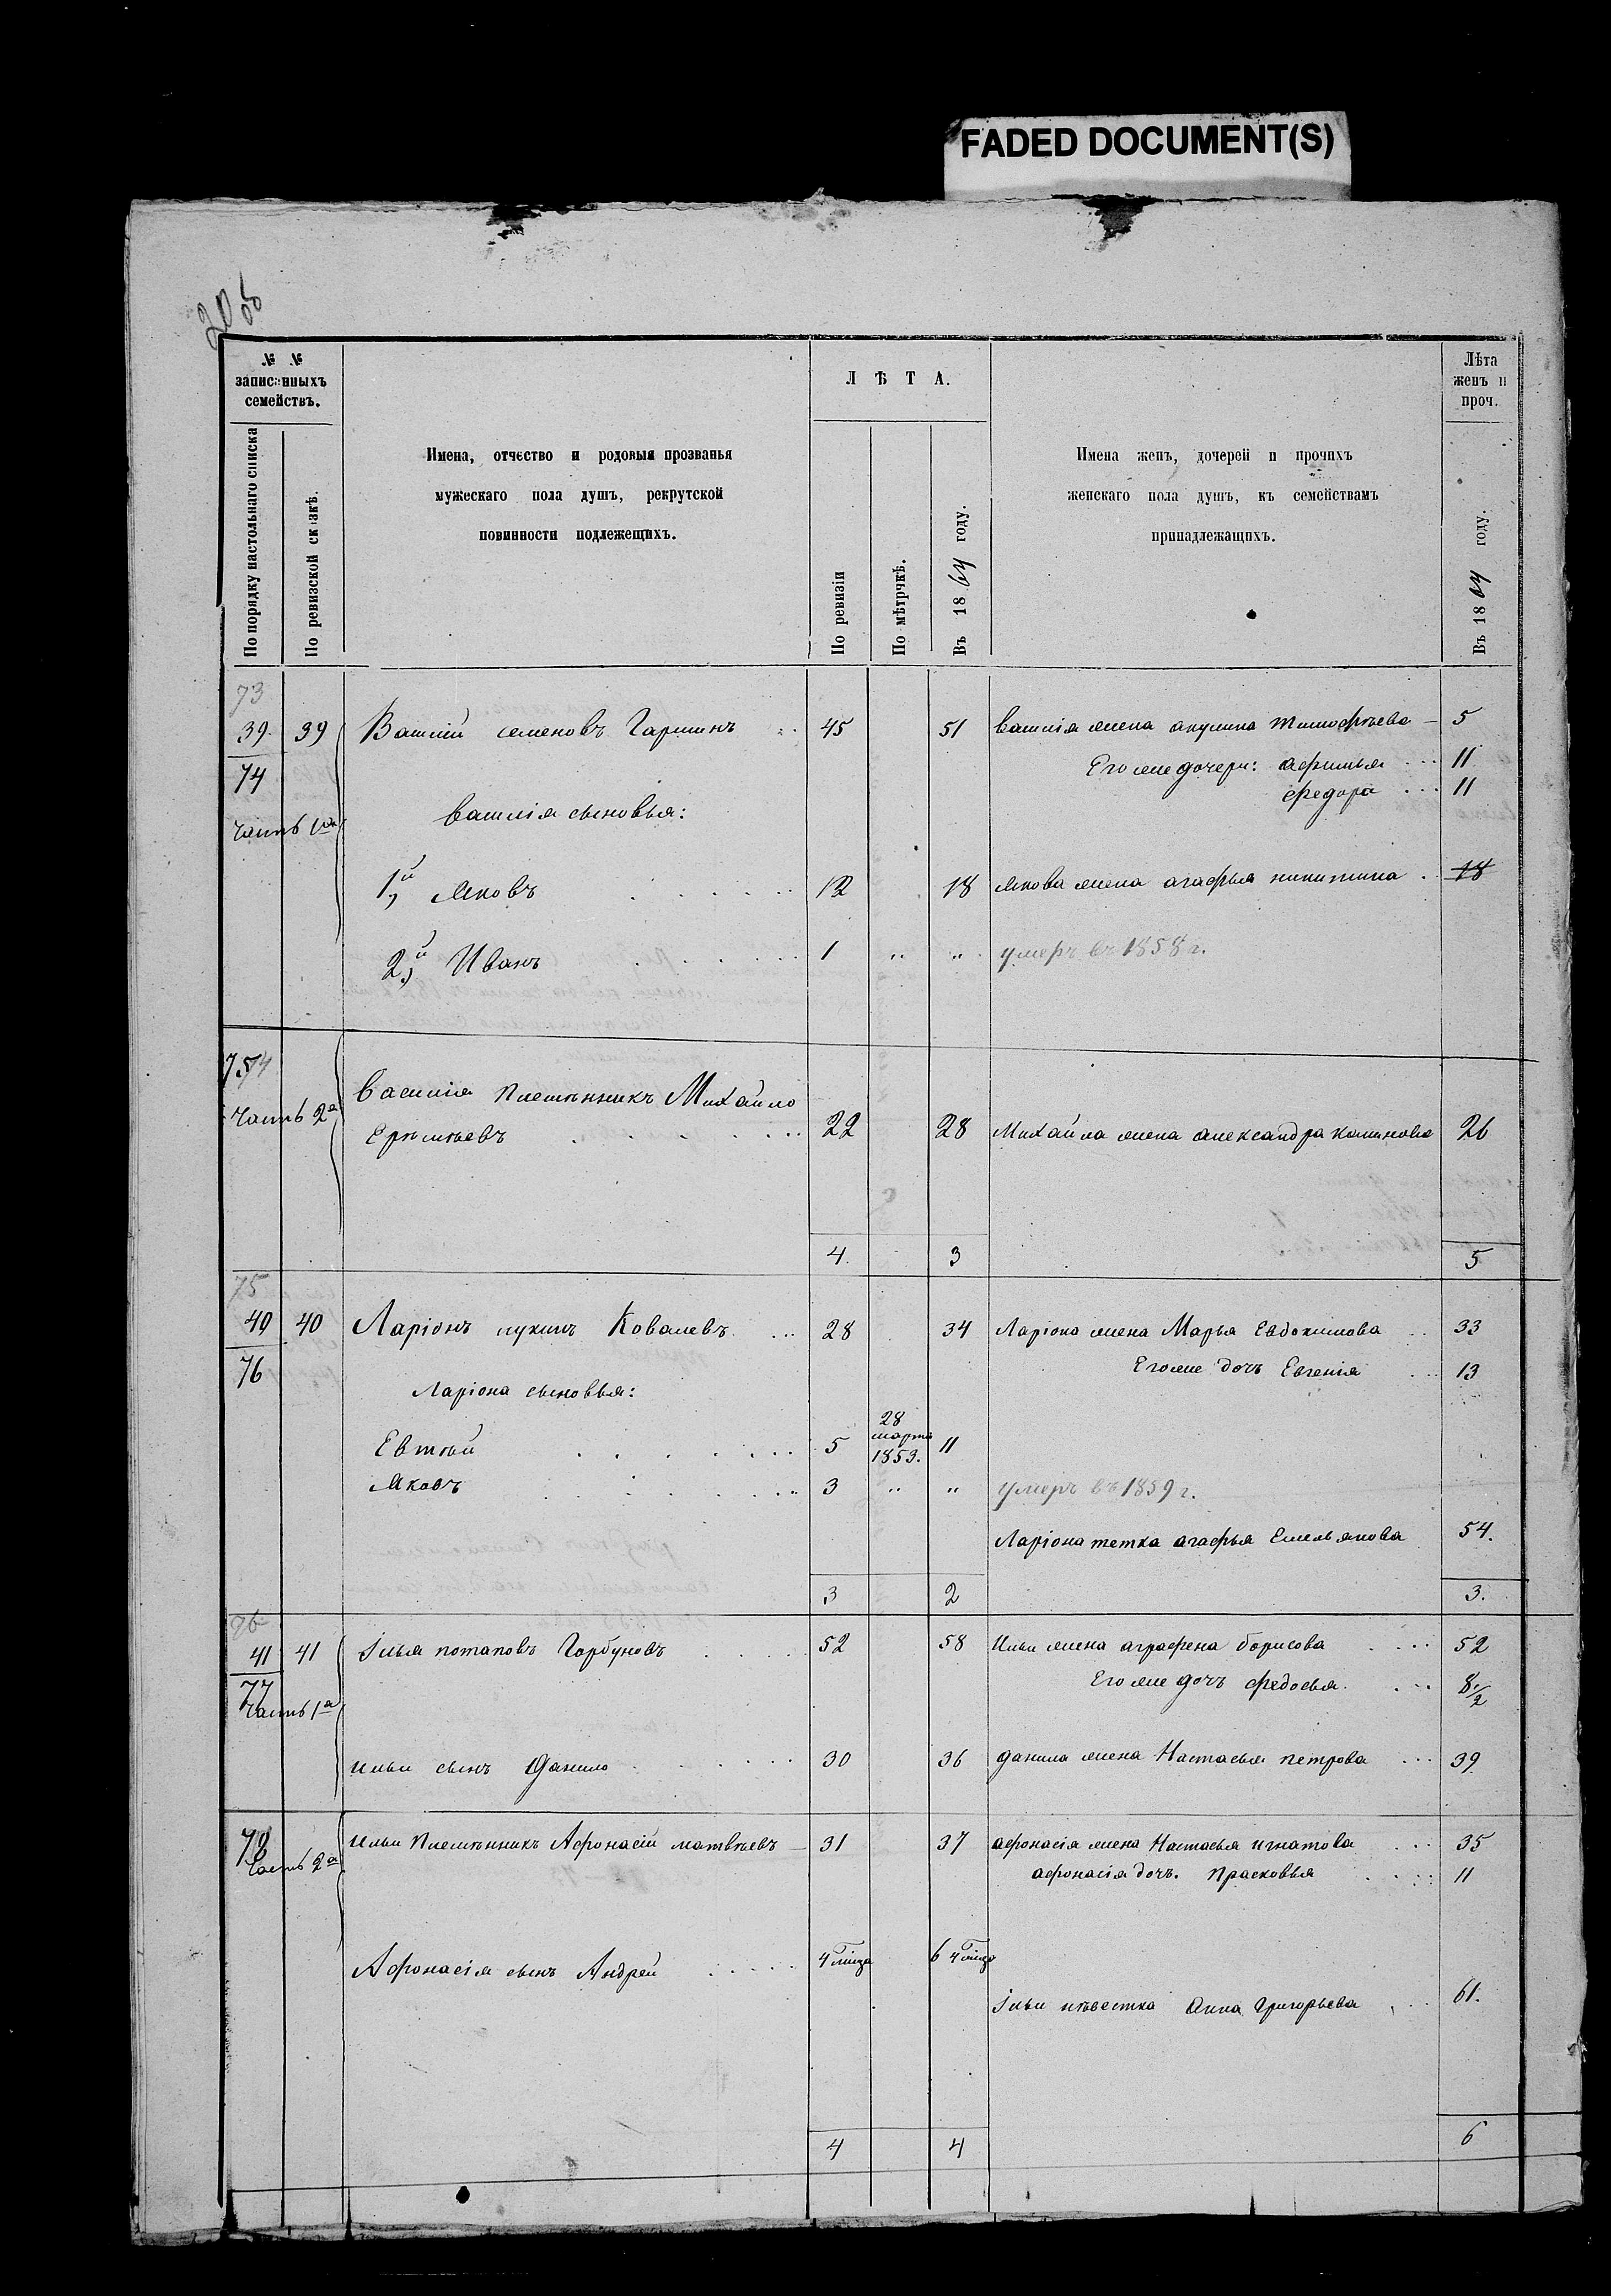 FADED DOCUMENT(S)
20 об
№ № записанныхъ семействъ.
По порядку настольнаго списка
По ревизской сказкѣ.
Имена, отчество и родовыя прозванья
мужескаго пола душъ, рекрутской
повинности подлежещихъ.
ЛѢТА.
По ревизіи
По мѣтрчкѣ.
Въ 1864 году.
Имена женъ, дочерей и прочихъ
женскаго пола душъ, къ семействамъ
принадлежащихъ.
Лѣта женъ и проч.
Въ 1864 году.
73
39 39 Василий семеновъ Гаршинъ 45 51 василія жена акулина тимофѣева 5
74 Его же дочери: афимья 11
федора 11
часть 1я василія сыновья:
1й, Яковъ 12 18 якова жена агафья никитина 18
2й, Иванъ 1 " " умеръ въ 1858 г.
75 74
часть 2я василія племѣнникъ Михайло
Ерѣмѣевъ 22 28 Михайла жена александра калинова 26
4. 3 5
75
40 40 Ларіонъ лукинъ Ковалевъ 28 34 Ларіона жена Марья Евдокимова 33
76 Его же дочь Евгенія 13
Ларіона сыновья:
Евтѣй 5 28 марта 1853. 11
Яковъ 3 " " умеръ въ 1859 г.
Ларіона тетка агафья Емельянова 54.
3 2 3.
76
41 41 Илья потаповъ Горбуновъ 52 58 Ильи жена аграфена борисова 52
77 Его же дочь федосья 8 1/2
Часть 1я
ильи сынъ Данило 30 36 данила жена Настасья петрова 39
78
Часть 2я ильи племѣнникъ Афонасій матвѣевъ 31 37 афонасія жена Настасья игнатова 35
афонасія дочь. прасковья 11
Афонасія сынъ Андрей 4 мѣца 6 4 мѣца
Ильи нѣвестка Анна Григорьева 61.
4 4 6